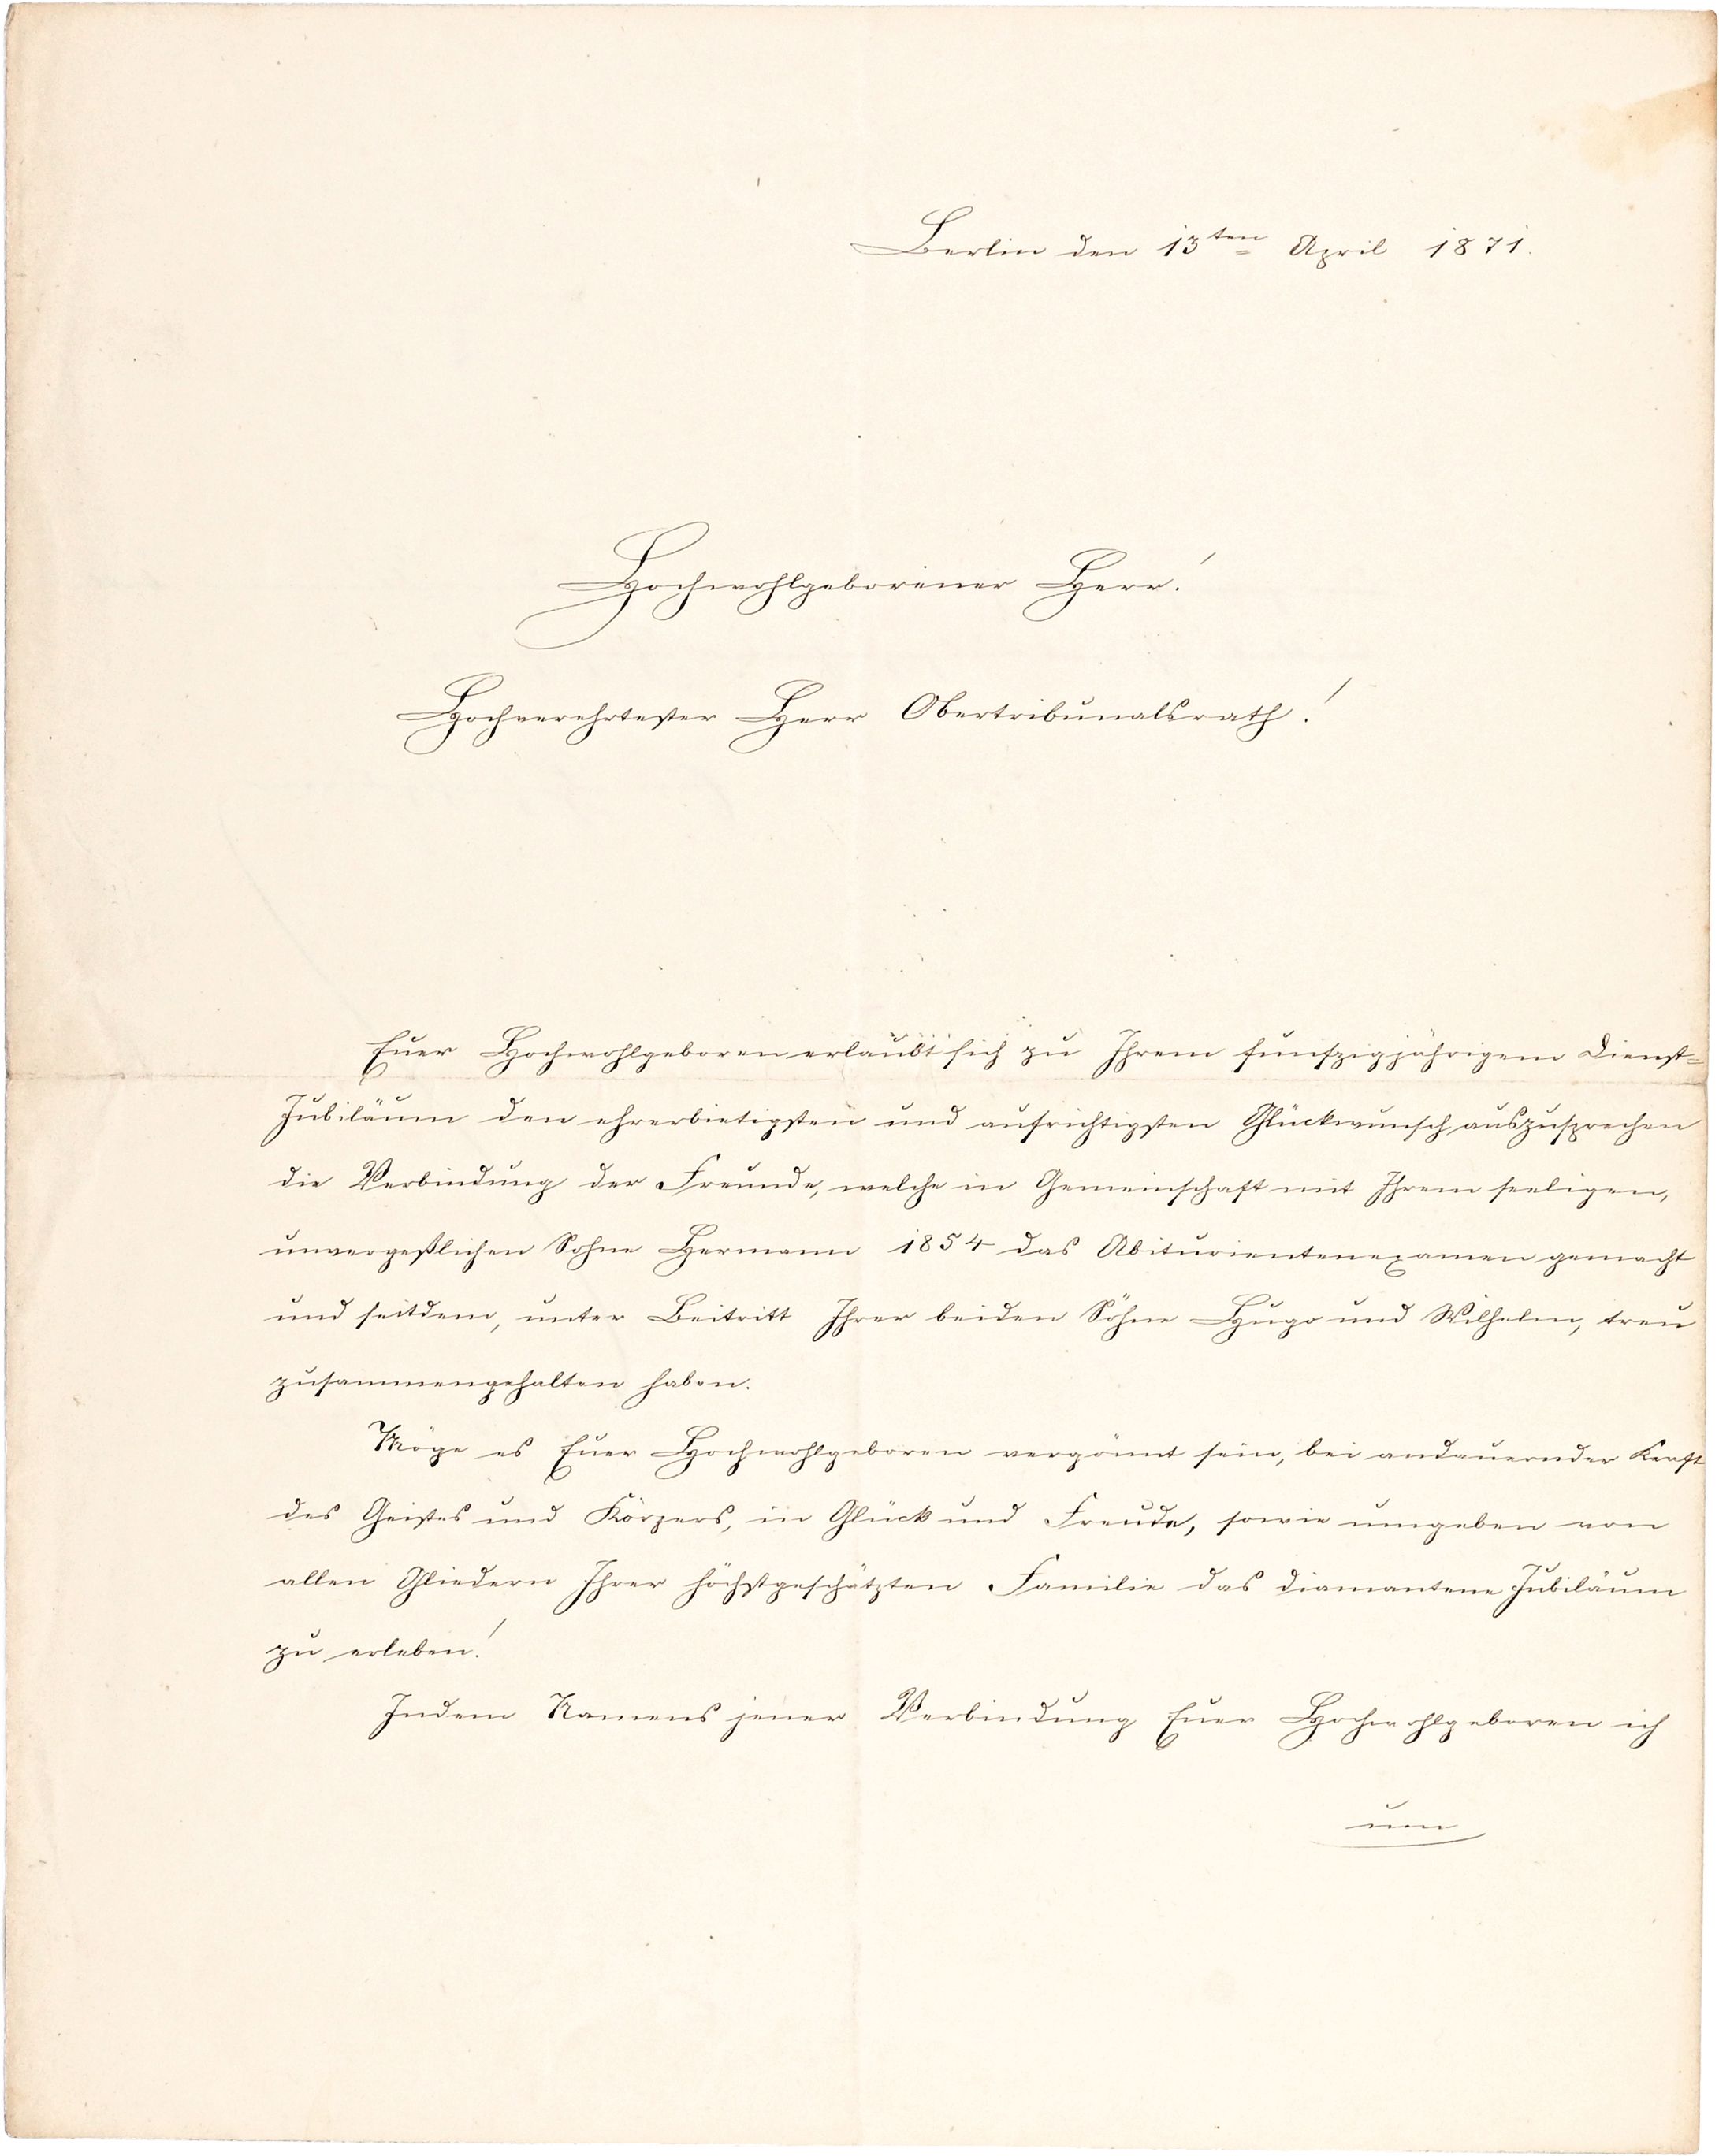 Berlin den 13ten April 1871.
Hochwohlgeborener Herr!
Hochverehrtester Herr Obertribunalsrath!
Euer Hochwohlgeboren erlaubt sich zu Ihrem funfzigjährigem Dienst-
Jubiläum den ehrerbietigsten und aufrichtigsten Glückwunsch auszusprechen
die Verbindung der Freunde, welche in Gemeinschaft mit Ihrem seeligen,
unvergeßlichen Sohne Hermann 1854 das Abiturientenexamen gemacht
und seitdem, unter Beitritt Ihrer beiden Söhne Hugo und Wilhelm, treu
zusammengehalten haben.
Möge es Euer Hochwohlgeboren vergönnt sein, bei andauernder Kraft
des Geistes und Körpers, in Glück und Freude, sowie umgeben von
allen Gliedern Ihrer höchstgeschätzten Familie das diamantene Jubiläum
zu erleben!
Indem Namens jener Verbindung Euer Hochwohlgeboren ich
um